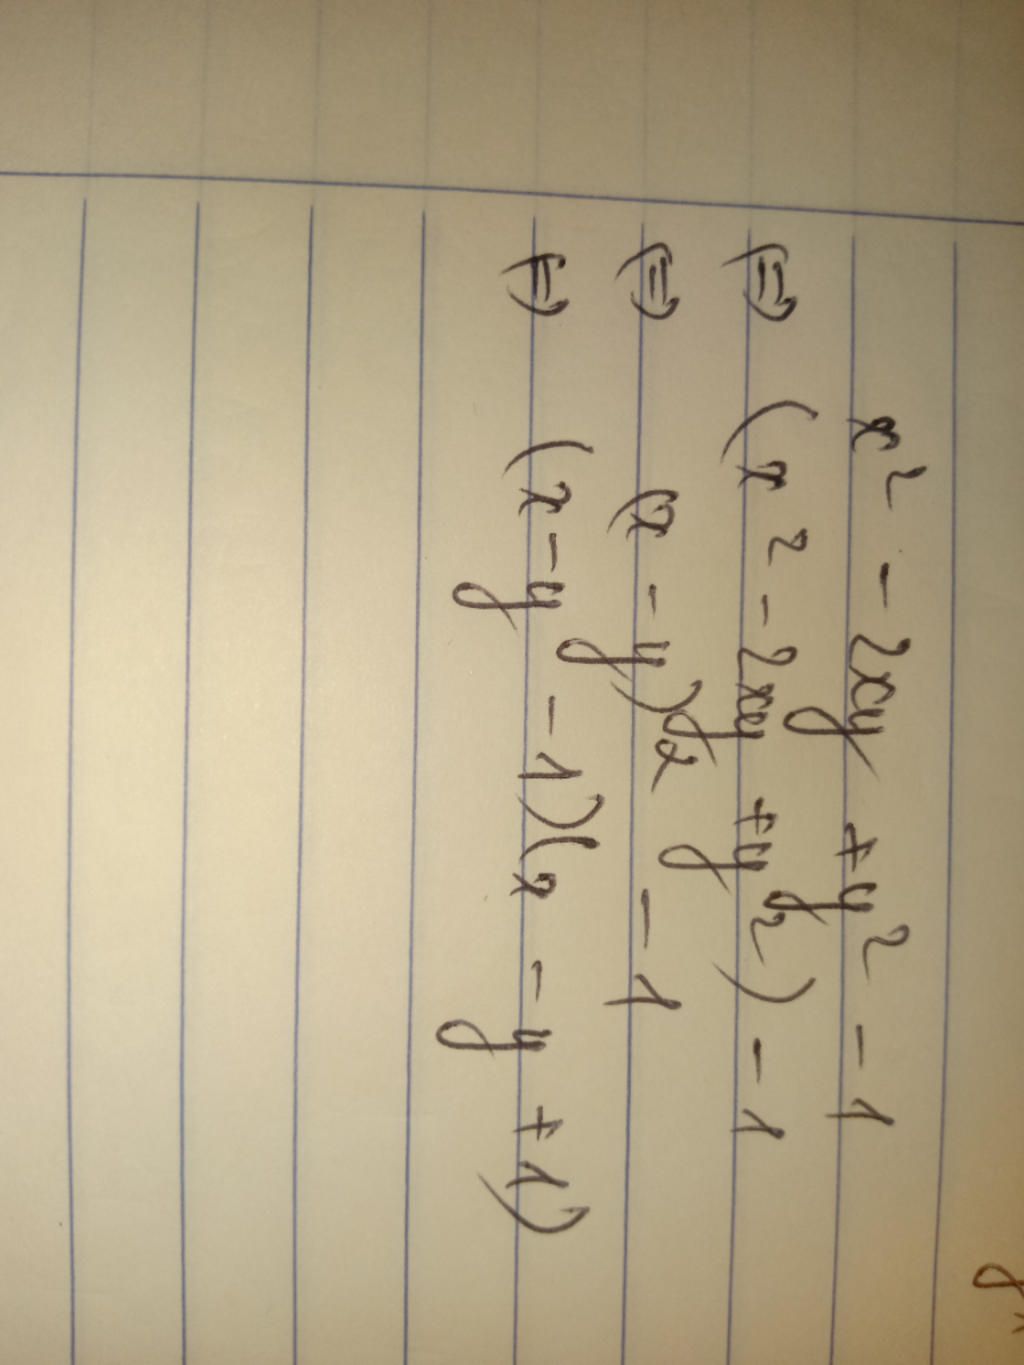 x² - 2xy + y² - 1
(=) (x² - 2xy + y²) - 1
(=) (x - y)² - 1
(=) (x - y - 1)(x - y + 1)